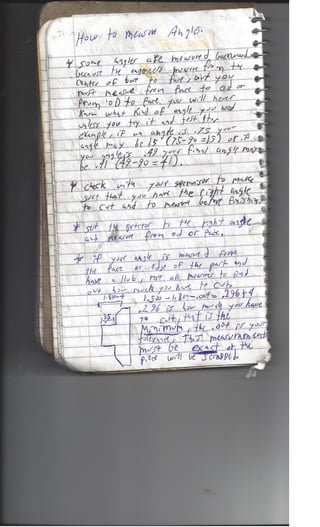 How to measure Angles
* some angles are measured backwards
because the engineers measure from the
center of bore to that part you
must measure from face to od or
from od to face, you will never
know what kind of angle you need
unless you try it and test it. For
example, if an angle is 75 your
angle may be 15 (75-90=15) or if
your angle is 49 your final angle may
be 41 (49-90=41).
* check with your supervisor to make
sure that you have the right angle
to cut and to measure before finishing
* set the protractor to the right angle
and measure from od or face.
* if your angle is measured from
the face or edge of the part and
have a
out how much you have to cut.
.296 is how much you have
to cut, this is the
Minimum, the .004 is your
tolerance, This measurement
must be exact or the
piece will be scrapped.